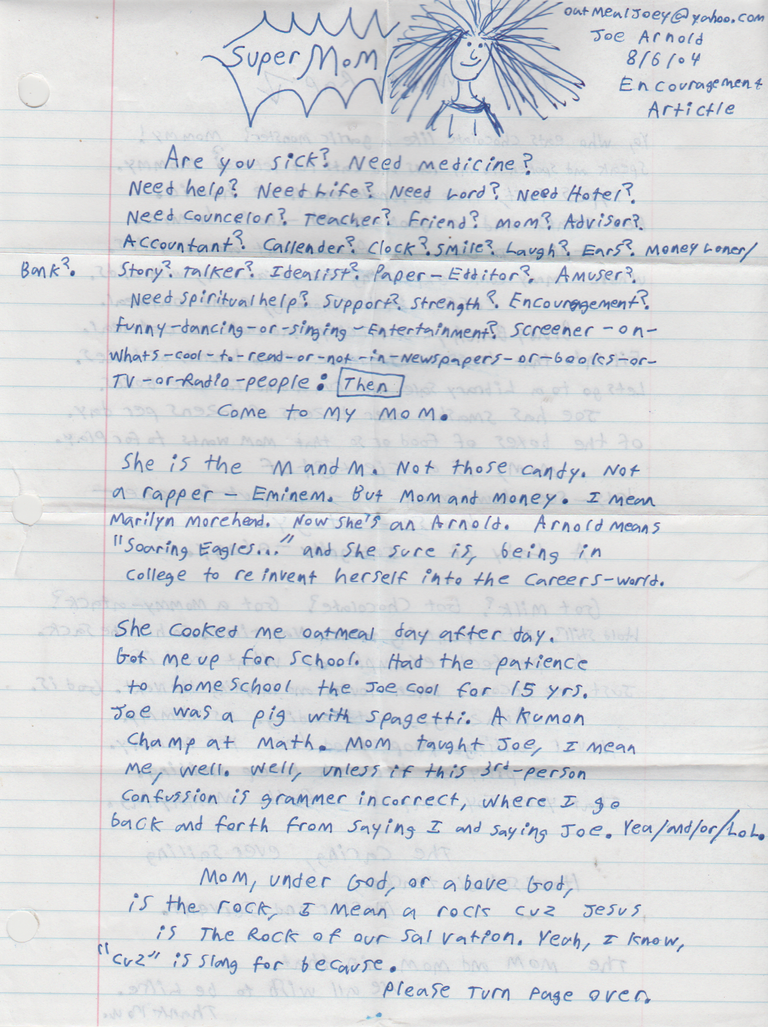 Super Mom
oatmealjoey@yahoo.com
Joe Arnold
8/6/04
Encouragement
Artictle
Are you sick? Need medicine?
Need help? Need Life? Need Lord? Need Hotel?
Need Councelor? Teacher? Friend? Mom? Advisor?
Accountant? Callender? Clock? Smile? Laugh? Ears? Money Loner/
Bank? Story? talker? Idealist? Paper-Edditor? Amuser?
Need spiritual help? Support? Strength? Encouragement?
funny-dancing-or-singing-Entertainment? Screener-on-
whats-cool-to-read-or-not-in-newspapers-or-books-or-
TV-or-Radio-people: Then
Come to my mom.
She is the M and M. Not those candy. Not
a rapper - Eminem. But Mom and money. I mean
Marilyn Morehead. Now she's an Arnold. Arnold means
"Soaring Eagles..." and she sure is, being in
college to re invent herself into the careers-world.
She cooked me oatmeal day after day.
Got me up for school. Had the patience
to homeschool the Joe cool for 15 yrs.
Joe was a pig with spagetti. A Kumon
champ at math. Mom taught Joe, I mean
me, well. Well, unless if this 3rd-person
confussion is grammer incorrect, where I go
back and forth from saying I and saying Joe. Yea/and/or/LoL.
Mom, under God, or above God,
is the rock, I mean a rock cuz Jesus
is The Rock of our Salvation. Yeah, I know,
"cuz" is slang for because.
Please Turn page over.